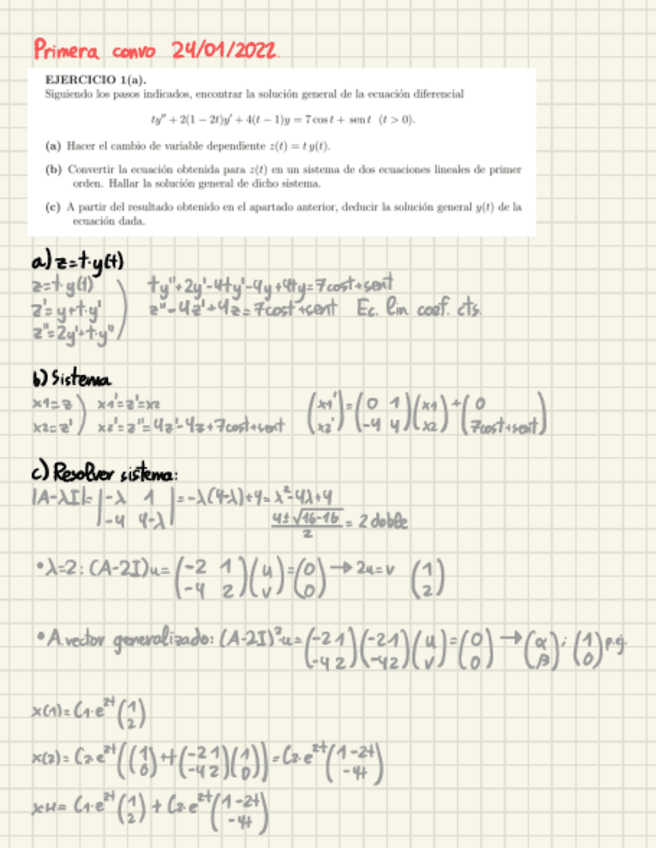 Primera convo 24/01/2022
EJERCICIO 1(a).
Siguiendo los pasos indicados, encontrar la solución general de la ecuación diferencial
ty'' + 2(1 − 2t)y' + 4(t − 1)y = 7 cos t + sen t (t > 0).
(a) Hacer el cambio de variable dependiente z(t) = t y(t).
(b) Convertir la ecuación obtenida para z(t) en un sistema de dos ecuaciones lineales de primer
orden. Hallar la solución general de dicho sistema.
(c) A partir del resultado obtenido en el apartado anterior, deducir la solución general y(t) de la
ecuación dada.
a) z=t·y(t)
z=t·y(t) ) ty''+2y'-4ty'-4y+4ty=7cost+sent
z'=y+t·y' z''-4z'+4z=7cost+sent Ec. lin coef. cts.
z''=2y'+t·y''
b) Sistema
x1=z ) x1'=z'=x2 (x1') = (0 1)(x1) + (0)
x2=z' x2'=z''=4z'-4z+7cost+sent (x2') (-4 4)(x2) (7cost+sent)
c) Resolver sistema:
|A-λI|= |-λ 1| = -λ(4-λ)+4=λ²-4λ+4
|-4 4-λ| (4±√16-16)/2 = 2 doble
•λ=2: (A-2I)u= (-2 1)(u) = (0) → 2u=v (1)
(-4 2)(v) (0) (2)
•A.vector generalizado: (A-2I)²·u= (-2 1)(-2 1)(u) = (0) → (α) ; (1) p.ej.
(-4 2)(-4 2)(v) (0) (β) (0)
x(1)= C1·e^2t (1)
(2)
x(2)= C2·e^2t ((1) + t(-2 1)(1)) = C2·e^2t (1-2t)
(0) (-4 2)(0) (-4t)
xH= C1·e^2t (1) + C2·e^2t (1-2t)
(2) (-4t)